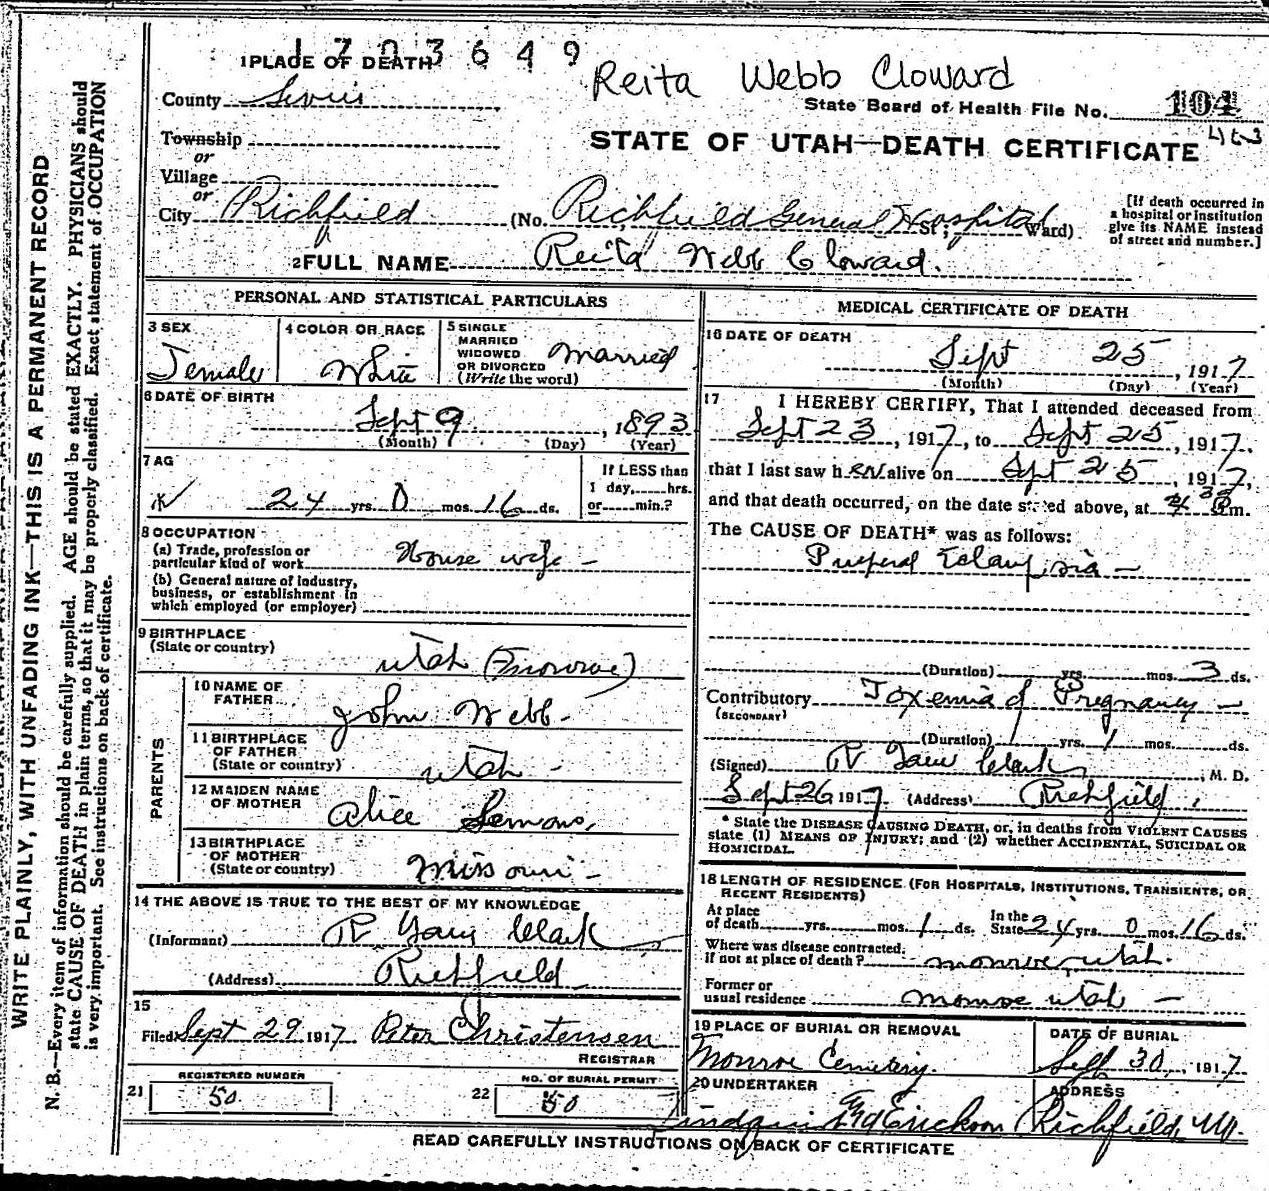 1703649
Reita Webb Cloward
1 PLACE OF DEATH
County Sevier
State Board of Health File No. 104
Township
or
Village
or
STATE OF UTAH—DEATH CERTIFICATE
City Richfield (No. Richfield General Hospital St; Ward)
[If death occurred in
a hospital or institution
give its NAME instead
of street and number.]
2 FULL NAME Reita Webb Cloward.
PERSONAL AND STATISTICAL PARTICULARS
3 SEX
Female
4 COLOR OR RACE
White
5 SINGLE
MARRIED
WIDOWED
OR DIVORCED
(Write the word)
Married
6 DATE OF BIRTH
Sept 9, 1893
(Month) (Day) (Year)
7 AG
24 yrs. 0 mos. 16 ds.
If LESS than
1 day, hrs.
or min.?
8 OCCUPATION
(a) Trade, profession or
particular kind of work House wife -
(b) General nature of industry,
business, or establishment in
which employed (or employer)
9 BIRTHPLACE
(State or country)
Utah (Monroe)
PARENTS
10 NAME OF
FATHER
John Webb -
11 BIRTHPLACE
OF FATHER
(State or country)
Utah -
12 MAIDEN NAME
OF MOTHER
Alice
13 BIRTHPLACE
OF MOTHER
(State or country)
Missouri -
14 THE ABOVE IS TRUE TO THE BEST OF MY KNOWLEDGE
(Informant) Clark
(Address) Richfield
15
Filed Sept 29 1917 Peter Christensen
REGISTRAR
REGISTERED NUMBER
21 50
NO. OF BURIAL PERMIT
22 50
MEDICAL CERTIFICATE OF DEATH
16 DATE OF DEATH
Sept 25, 1917
(Month) (Day) (Year)
17 I HEREBY CERTIFY, That I attended deceased from
Sept 23, 1917, to Sept 25, 1917,
that I last saw h er alive on Sept 25, 1917,
and that death occurred, on the date stated above, at m.
The CAUSE OF DEATH* was as follows:
Puerperal Eclampsia -
(Duration) yrs. mos. 3 ds.
Contributory Toxemia of Pregnancy -
(SECONDARY)
(Duration) yrs. 1 mos. ds.
(Signed) Clark, M. D.
Sept 26 1917 (Address) Richfield,
* State the DISEASE CAUSING DEATH, or, in deaths from VIOLENT CAUSES
state (1) MEANS OF INJURY; and (2) whether ACCIDENTAL, SUICIDAL OR
HOMICIDAL.
18 LENGTH OF RESIDENCE (FOR HOSPITALS, INSTITUTIONS, TRANSIENTS, OR
RECENT RESIDENTS)
At place
of death yrs. mos. 1 ds. In the
State 24 yrs. 0 mos. 16 ds.
Where was disease contracted,
if not at place of death? Monroe, Utah.
Former or
usual residence Monroe Utah -
19 PLACE OF BURIAL OR REMOVAL
Monroe Cemetery.
DATE OF BURIAL
Sept 30, 1917
20 UNDERTAKER
Erickson
ADDRESS
Richfield
READ CAREFULLY INSTRUCTIONS ON BACK OF CERTIFICATE
WRITE PLAINLY, WITH UNFADING INK—THIS IS A PERMANENT RECORD
N. B.—Every item of information should be carefully supplied. AGE should be stated EXACTLY. PHYSICIANS should
state CAUSE OF DEATH in plain terms, so that it may be properly classified. Exact statement of OCCUPATION
is very important. See instructions on back of certificate.